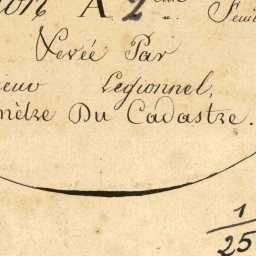 ion A 2ème Feuil
Levée Par
ieur Legionnel,
mètre Du Cadastre.
1
25